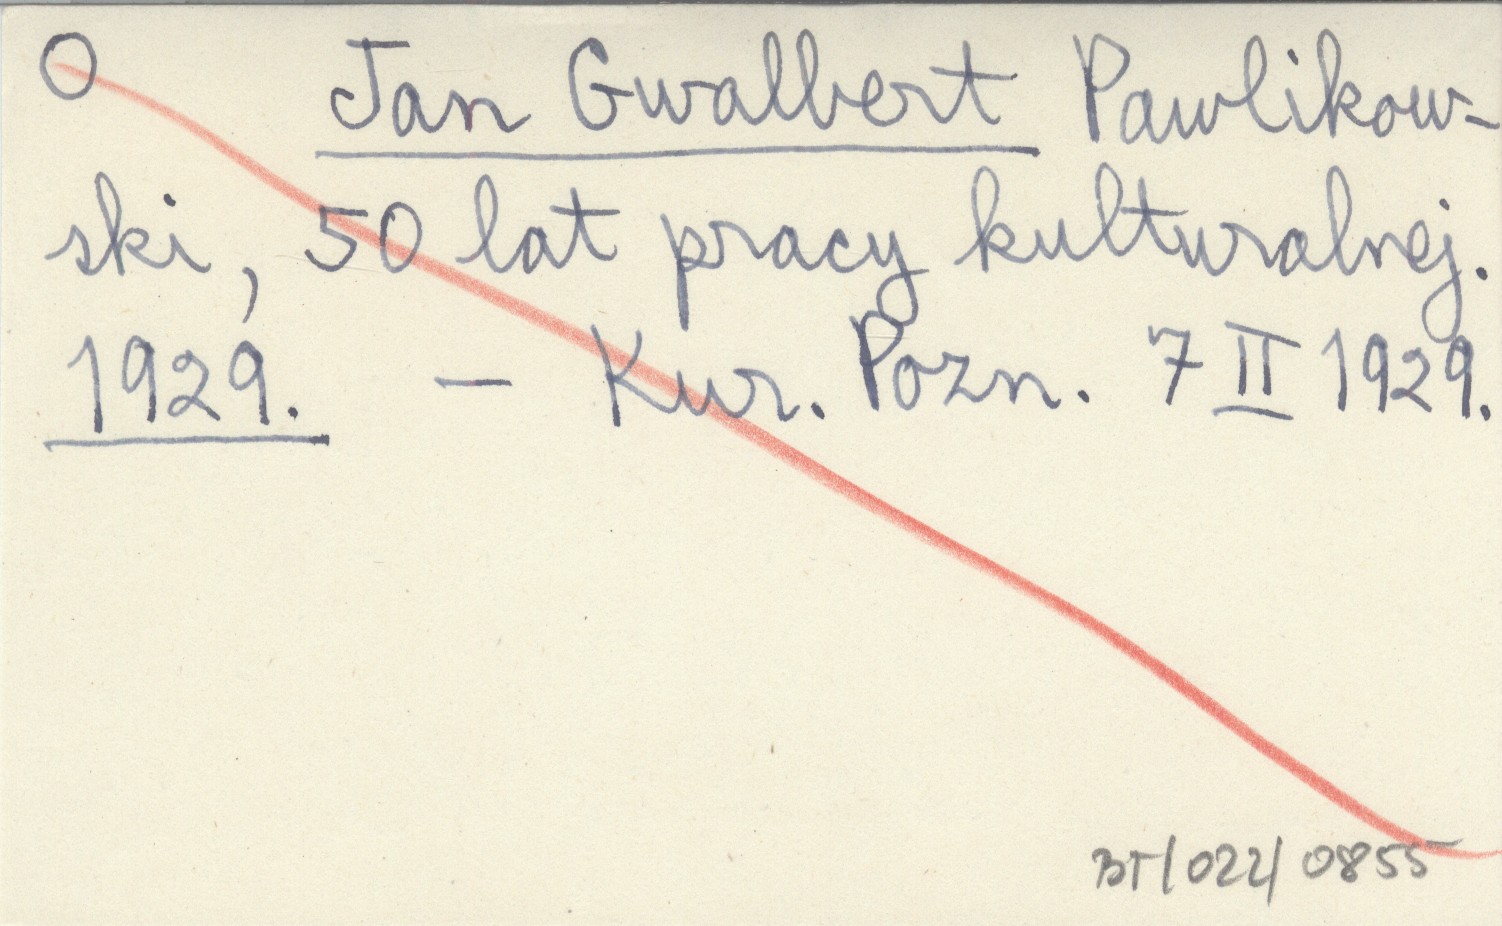 O Jan Gwalbert Pawlikow-
ski, 50 lat pracy kulturalnej.
1929. — Kur. Pozn. 7 II 1929.
BT/022/0855